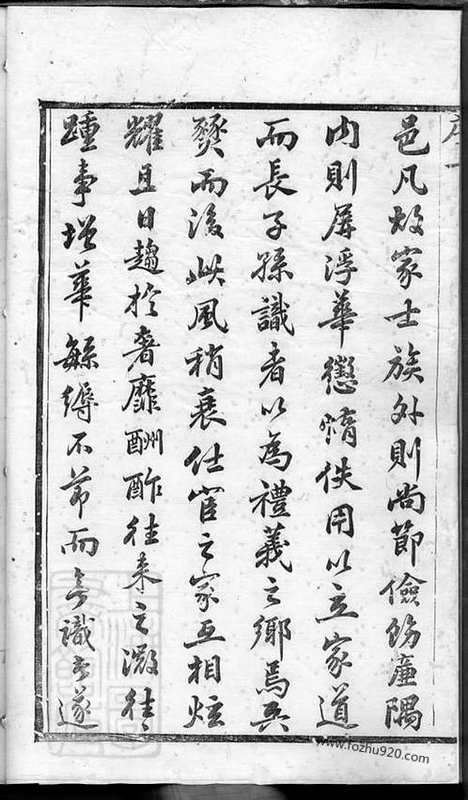 序一
邑凡故家士族外則尚節儉飭廉隅
內則屏浮華懲惰佚用以立家道
而長子孫識者以為禮義之鄉焉兵
燹而後此風稍衰仕宦之家互相炫
耀且日趨於奢靡酬酢往來之往〻
踵事增華緐縟不節而無識者遂
www.fozhu920.com